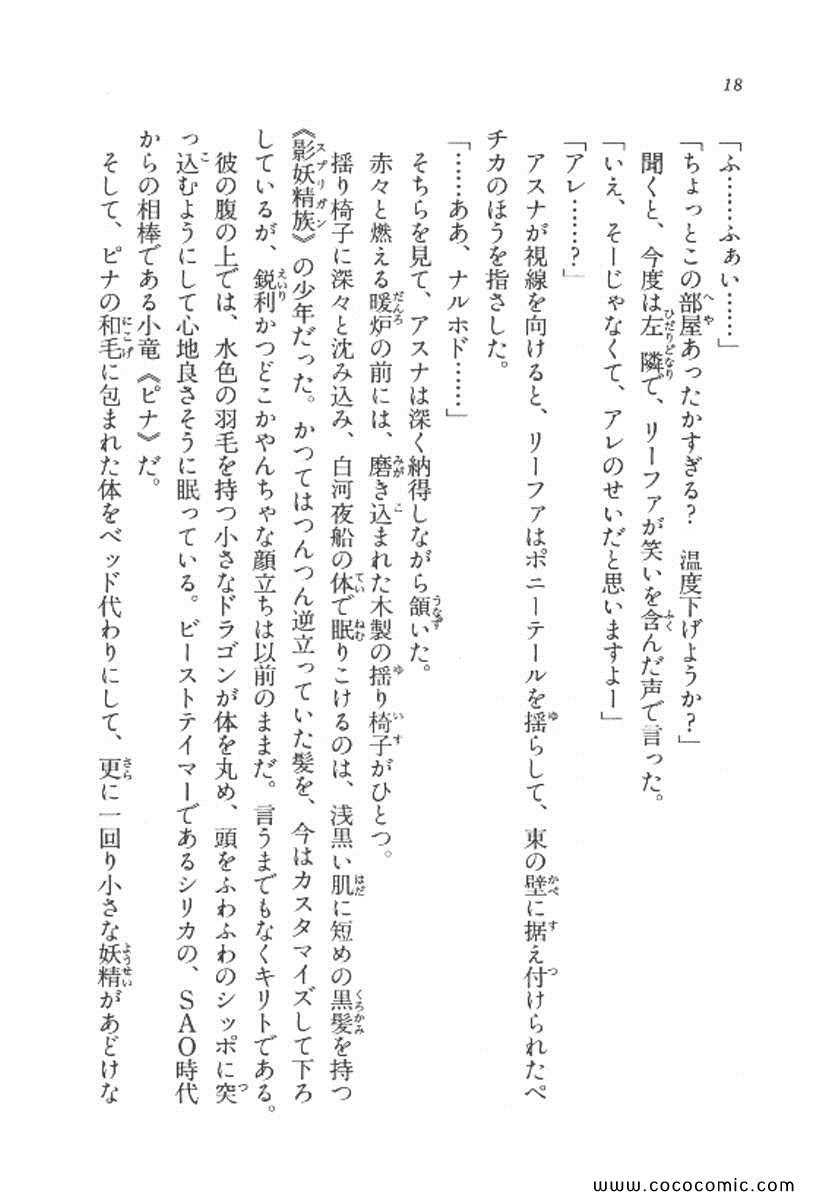 18
「ふ……ふぁい……」
「ちょっとこの部屋あったかすぎる? 温度下げようか?」
聞くと、今度は左隣で、リーファが笑いを含んだ声で言った。
「いえ、そーじゃなくて、アレのせいだと思いますよー」
「アレ……?」
アスナが視線を向けると、リーファはポニーテールを揺らして、東の壁に据え付けられたペ
チカのほうを指さした。
「……ああ、ナルホド……」
そちらを見て、アスナは深く納得しながら頷いた。
赤々と燃える暖炉の前には、磨き込まれた木製の揺り椅子がひとつ。
揺り椅子に深々と沈み込み、白河夜船の体で眠りこけるのは、浅黒い肌に短めの黒髪を持つ
《影妖精族》の少年だった。かつてはつんつん逆立っていた髪を、今はカスタマイズして下ろ
しているが、鋭利かつどこかやんちゃな顔立ちは以前のままだ。言うまでもなくキリトである。
彼の腹の上では、水色の羽毛を持つ小さなドラゴンが体を丸め、頭をふわふわのシッポに突
っ込むようにして心地良さそうに眠っている。ビーストテイマーであるシリカの、SAO時代
からの相棒である小竜《ピナ》だ。
そして、ピナの和毛に包まれた体をベッド代わりにして、更に一回り小さな妖精があどけな
www.cococomic.com